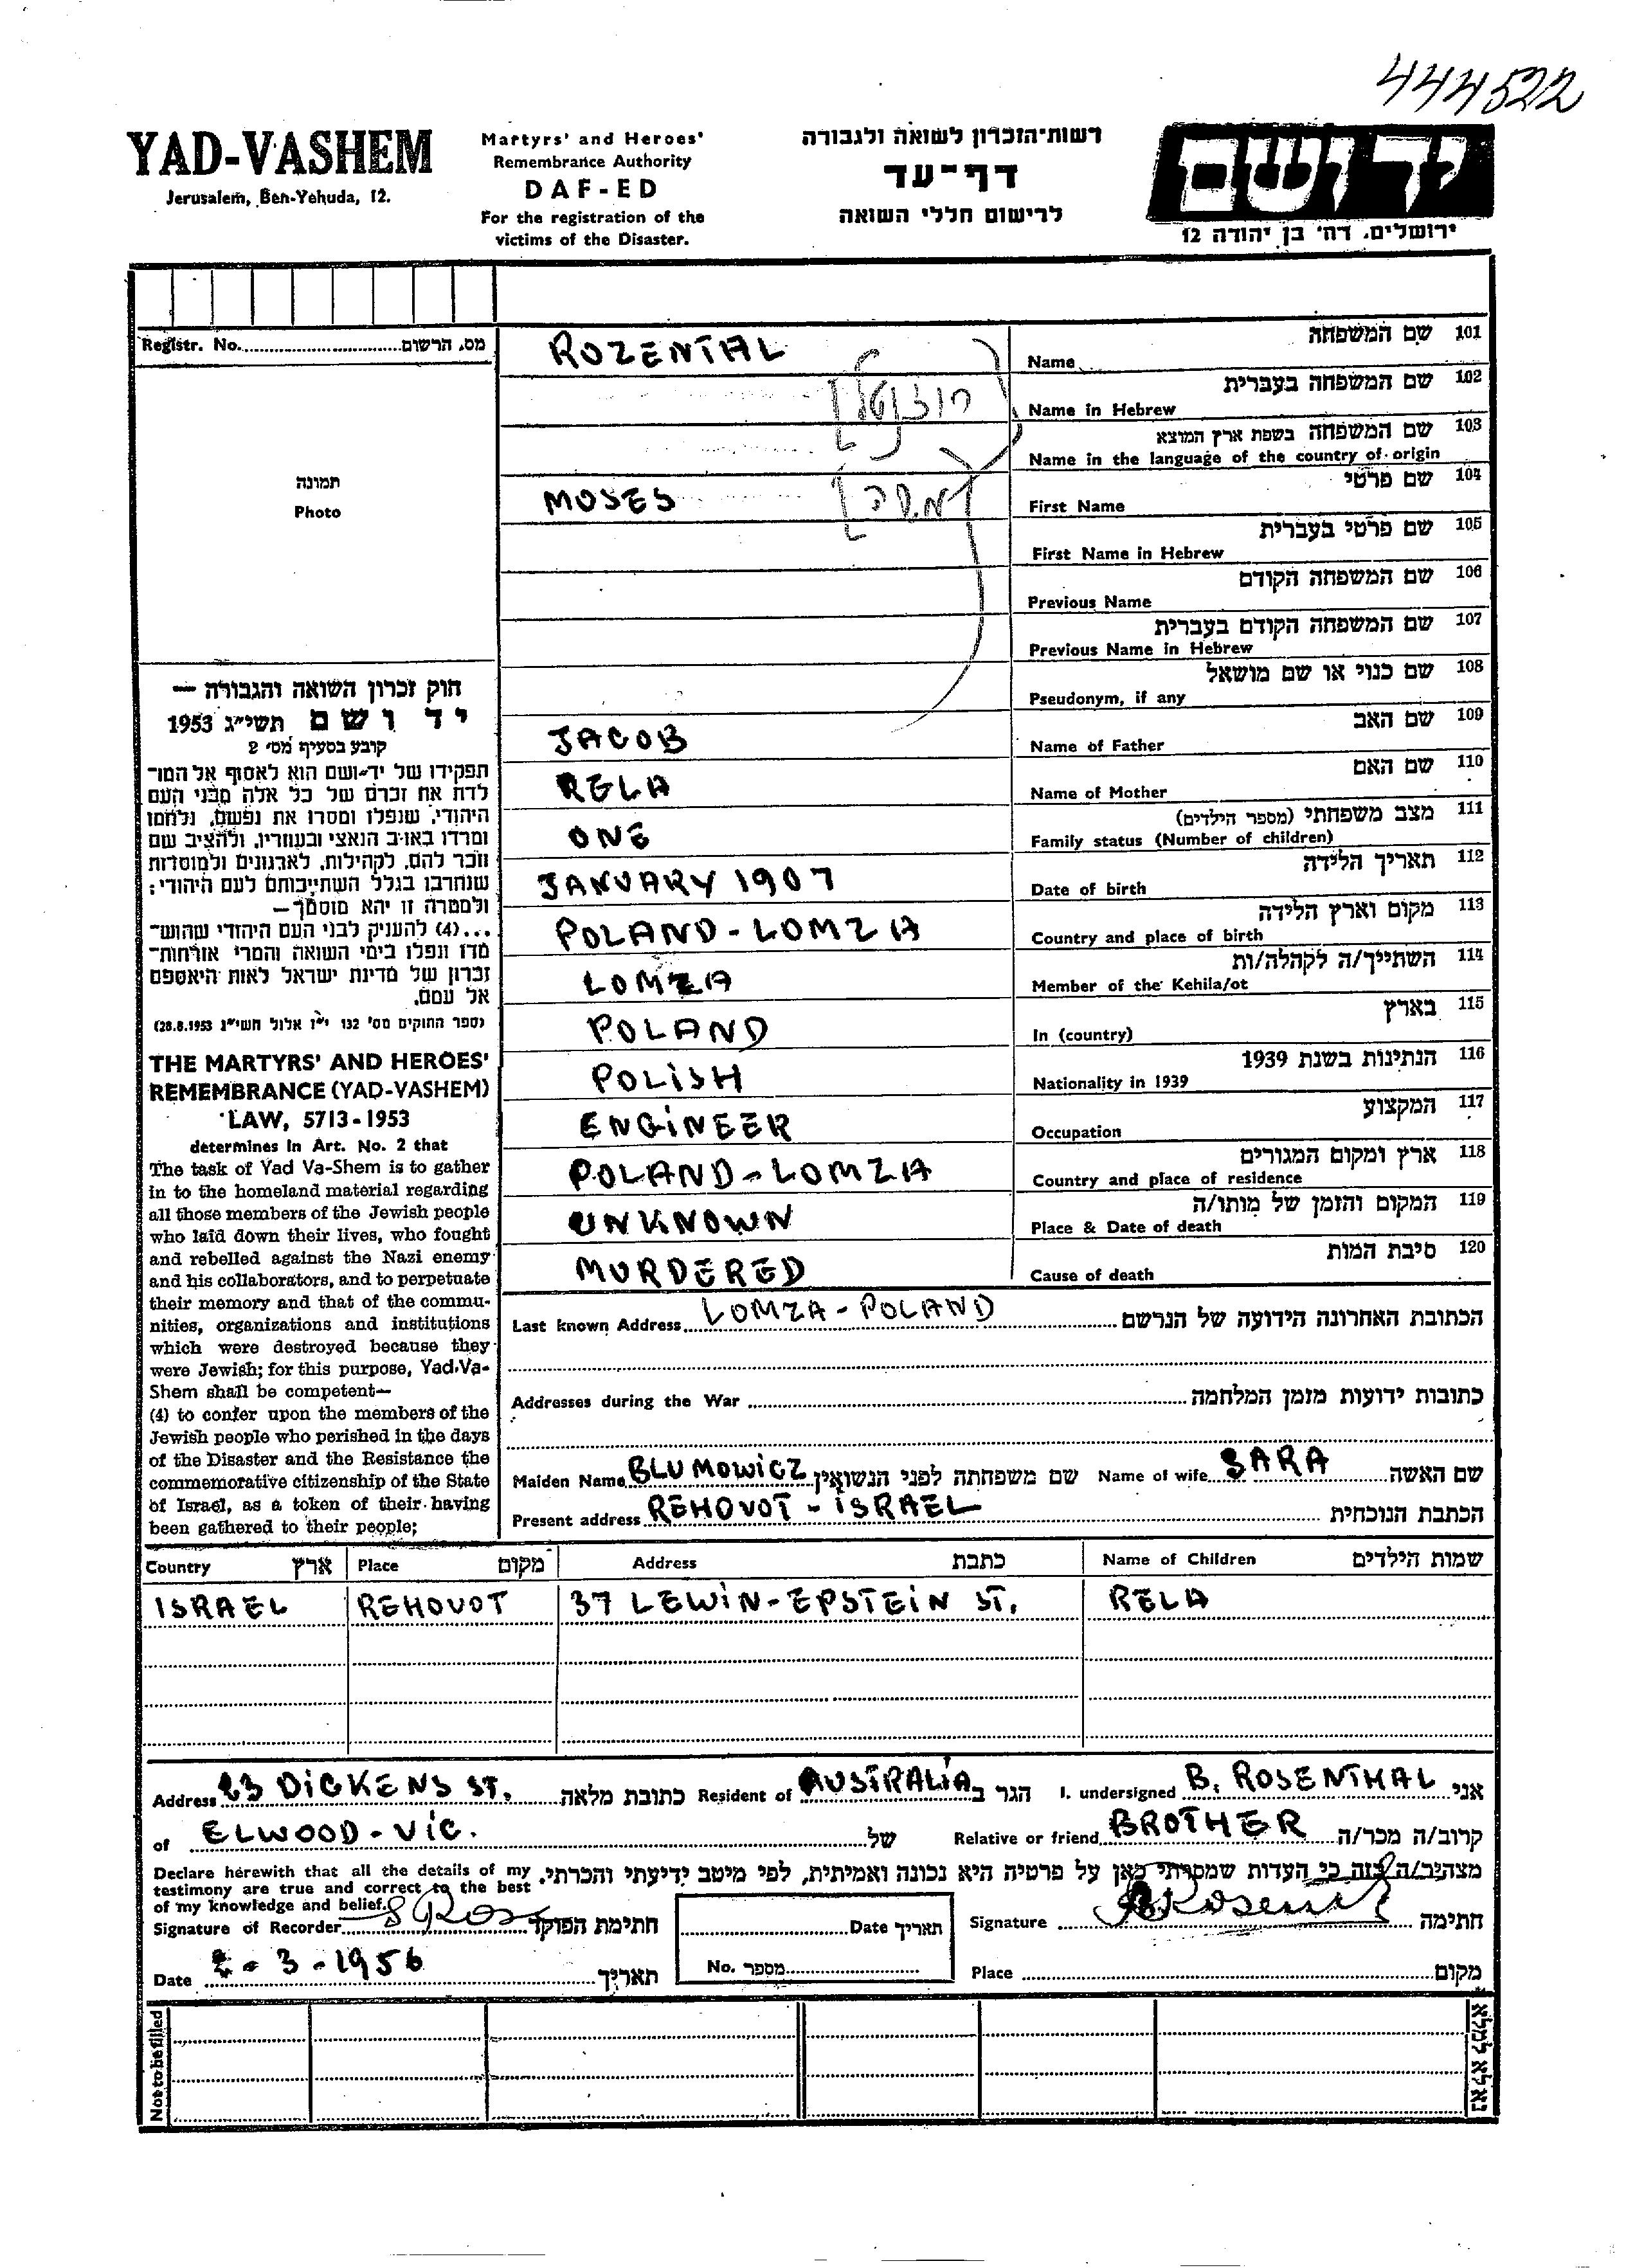 444522
YAD-VASHEM
Jerusalem, Ben-Yehuda, 12.
Martyrs' and Heroes'
Remembrance Authority
DAF-ED
For the registration of the
victims of the Disaster.
רשות-הזכרון לשואה ולגבורה
דף-עד
לרישום חללי השואה
יד ושם
ירושלים, רח' בן יהודה 12
Registr. No. מס. הרשום
תמונה
Photo
חוק זכרון השואה והגבורה —
יד ושם תשי״ג 1953
קובע בסעיף מס' 2
תפקידו של יד-ושם הוא לאסוף אל המו־
לדת את זכרם של כל אלה מבני העם
היהודי, שנפלו ומסרו את נפשם, נלחמו
ומרדו באויב הנאצי ובעוזריו, ולהציב שם
וזכר להם, לקהילות, לארגונים ולמוסדות
שנחרבו בגלל השתייכותם לעם היהודי;
ולמטרה זו יהא מוסמך—
...(4) להעניק לבני העם היהודי שהוש־
מדו ונפלו בימי השואה והמרי אזרחות־
זכרון של מדינת ישראל לאות היאספם
אל עמם.
(ספר החוקים מס' 132 י״ז אלול תשי״ג 28.8.1953)
THE MARTYRS' AND HEROES'
REMEMBRANCE (YAD-VASHEM)
LAW, 5713-1953
determines in Art. No. 2 that
The task of Yad Va-Shem is to gather
in to the homeland material regarding
all those members of the Jewish people
who laid down their lives, who fought
and rebelled against the Nazi enemy
and his collaborators, and to perpetuate
their memory and that of the commu-
nities, organizations and institutions
which were destroyed because they
were Jewish; for this purpose, Yad-Va-
Shem shall be competent—
(4) to confer upon the members of the
Jewish people who perished in the days
of the Disaster and the Resistance the
commemorative citizenship of the State
of Israel, as a token of their having
been gathered to their people;
ROZENTAL Name שם המשפחה 101
רוזנטל Name in Hebrew שם המשפחה בעברית 102
Name in the language of the country of origin שם המשפחה בשפת ארץ המוצא 103
MOSES First Name שם פרטי 104
First Name in Hebrew שם פרטי בעברית 105
Previous Name שם המשפחה הקודם 106
Previous Name in Hebrew שם המשפחה הקודם בעברית 107
Pseudonym, if any שם כנוי או שם מושאל 108
JACOB Name of Father שם האב 109
RELA Name of Mother שם האם 110
ONE Family status (Number of children) מצב משפחתי (מספר הילדים) 111
JANUARY 1907 Date of birth תאריך הלידה 112
POLAND-LOMZA Country and place of birth מקום וארץ הלידה 113
LOMZA Member of the Kehila/ot השתייך/ה לקהלה/ות 114
POLAND In (country) בארץ 115
POLISH Nationality in 1939 הנתינות בשנת 1939 116
ENGINEER Occupation המקצוע 117
POLAND-LOMZA Country and place of residence ארץ ומקום המגורים 118
UNKNOWN Place & Date of death המקום והזמן של מותו/ה 119
MURDERED Cause of death סיבת המות 120
Last known Address LOMZA-POLAND הכתובת האחרונה הידועה של הנרשם
Addresses during the War כתובות ידועות מזמן המלחמה
Maiden Name BLUMOWICZ שם משפחתה לפני הנשואין Name of wife SARA שם האשה
Present address REHOVOT-ISRAEL הכתבת הנוכחית
Country ארץ Place מקום Address כתבת Name of Children שמות הילדים
ISRAEL REHOVOT 37 LEWIN-EPSTEIN ST. RELA
Address 23 DICKENS ST. כתובת מלאה Resident of AUSTRALIA הגר ב I. undersigned B. ROSENTHAL אני
of ELWOOD-VIC. של Relative or friend BROTHER קרוב/ה מכר/ה
Declare herewith that all the details of my מצהיר/ה בזה כי העדות שמסרתי כאן על פרטיה היא נכונה ואמיתית, לפי מיטב ידיעתי והכרתי.
testimony are true and correct to the best
of my knowledge and belief.
Signature of Recorder חתימת הפוקד Date תאריך Signature חתימה
Date 2-3-1956 תאריך No. מספר Place מקום
Not to be filled
נא לא למלא